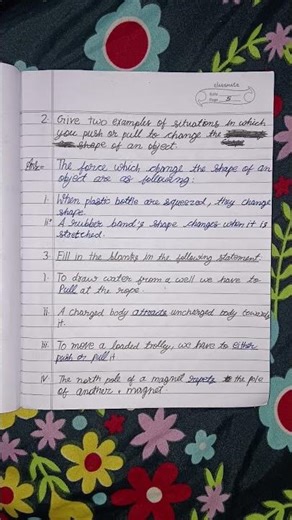 classmate
Date
Page 5
2. Give two examples of situations in which
you push or pull to change the
shape of an object.
Ans= The force which change the shape of an
object are as following:
i. When plastic bottle are squeezed, they change
shape.
ii. A rubber band's shape changes when it is
stretched.
3. Fill in the blanks in the following statement
i. To draw water from a well we have to
Pull at the rope
ii. A charged body attracts uncharged body towards
it.
iii. To move a loaded trolley, we have to either
push or pull it
iv. The north pole of a magnet repels the pole
of another magnet